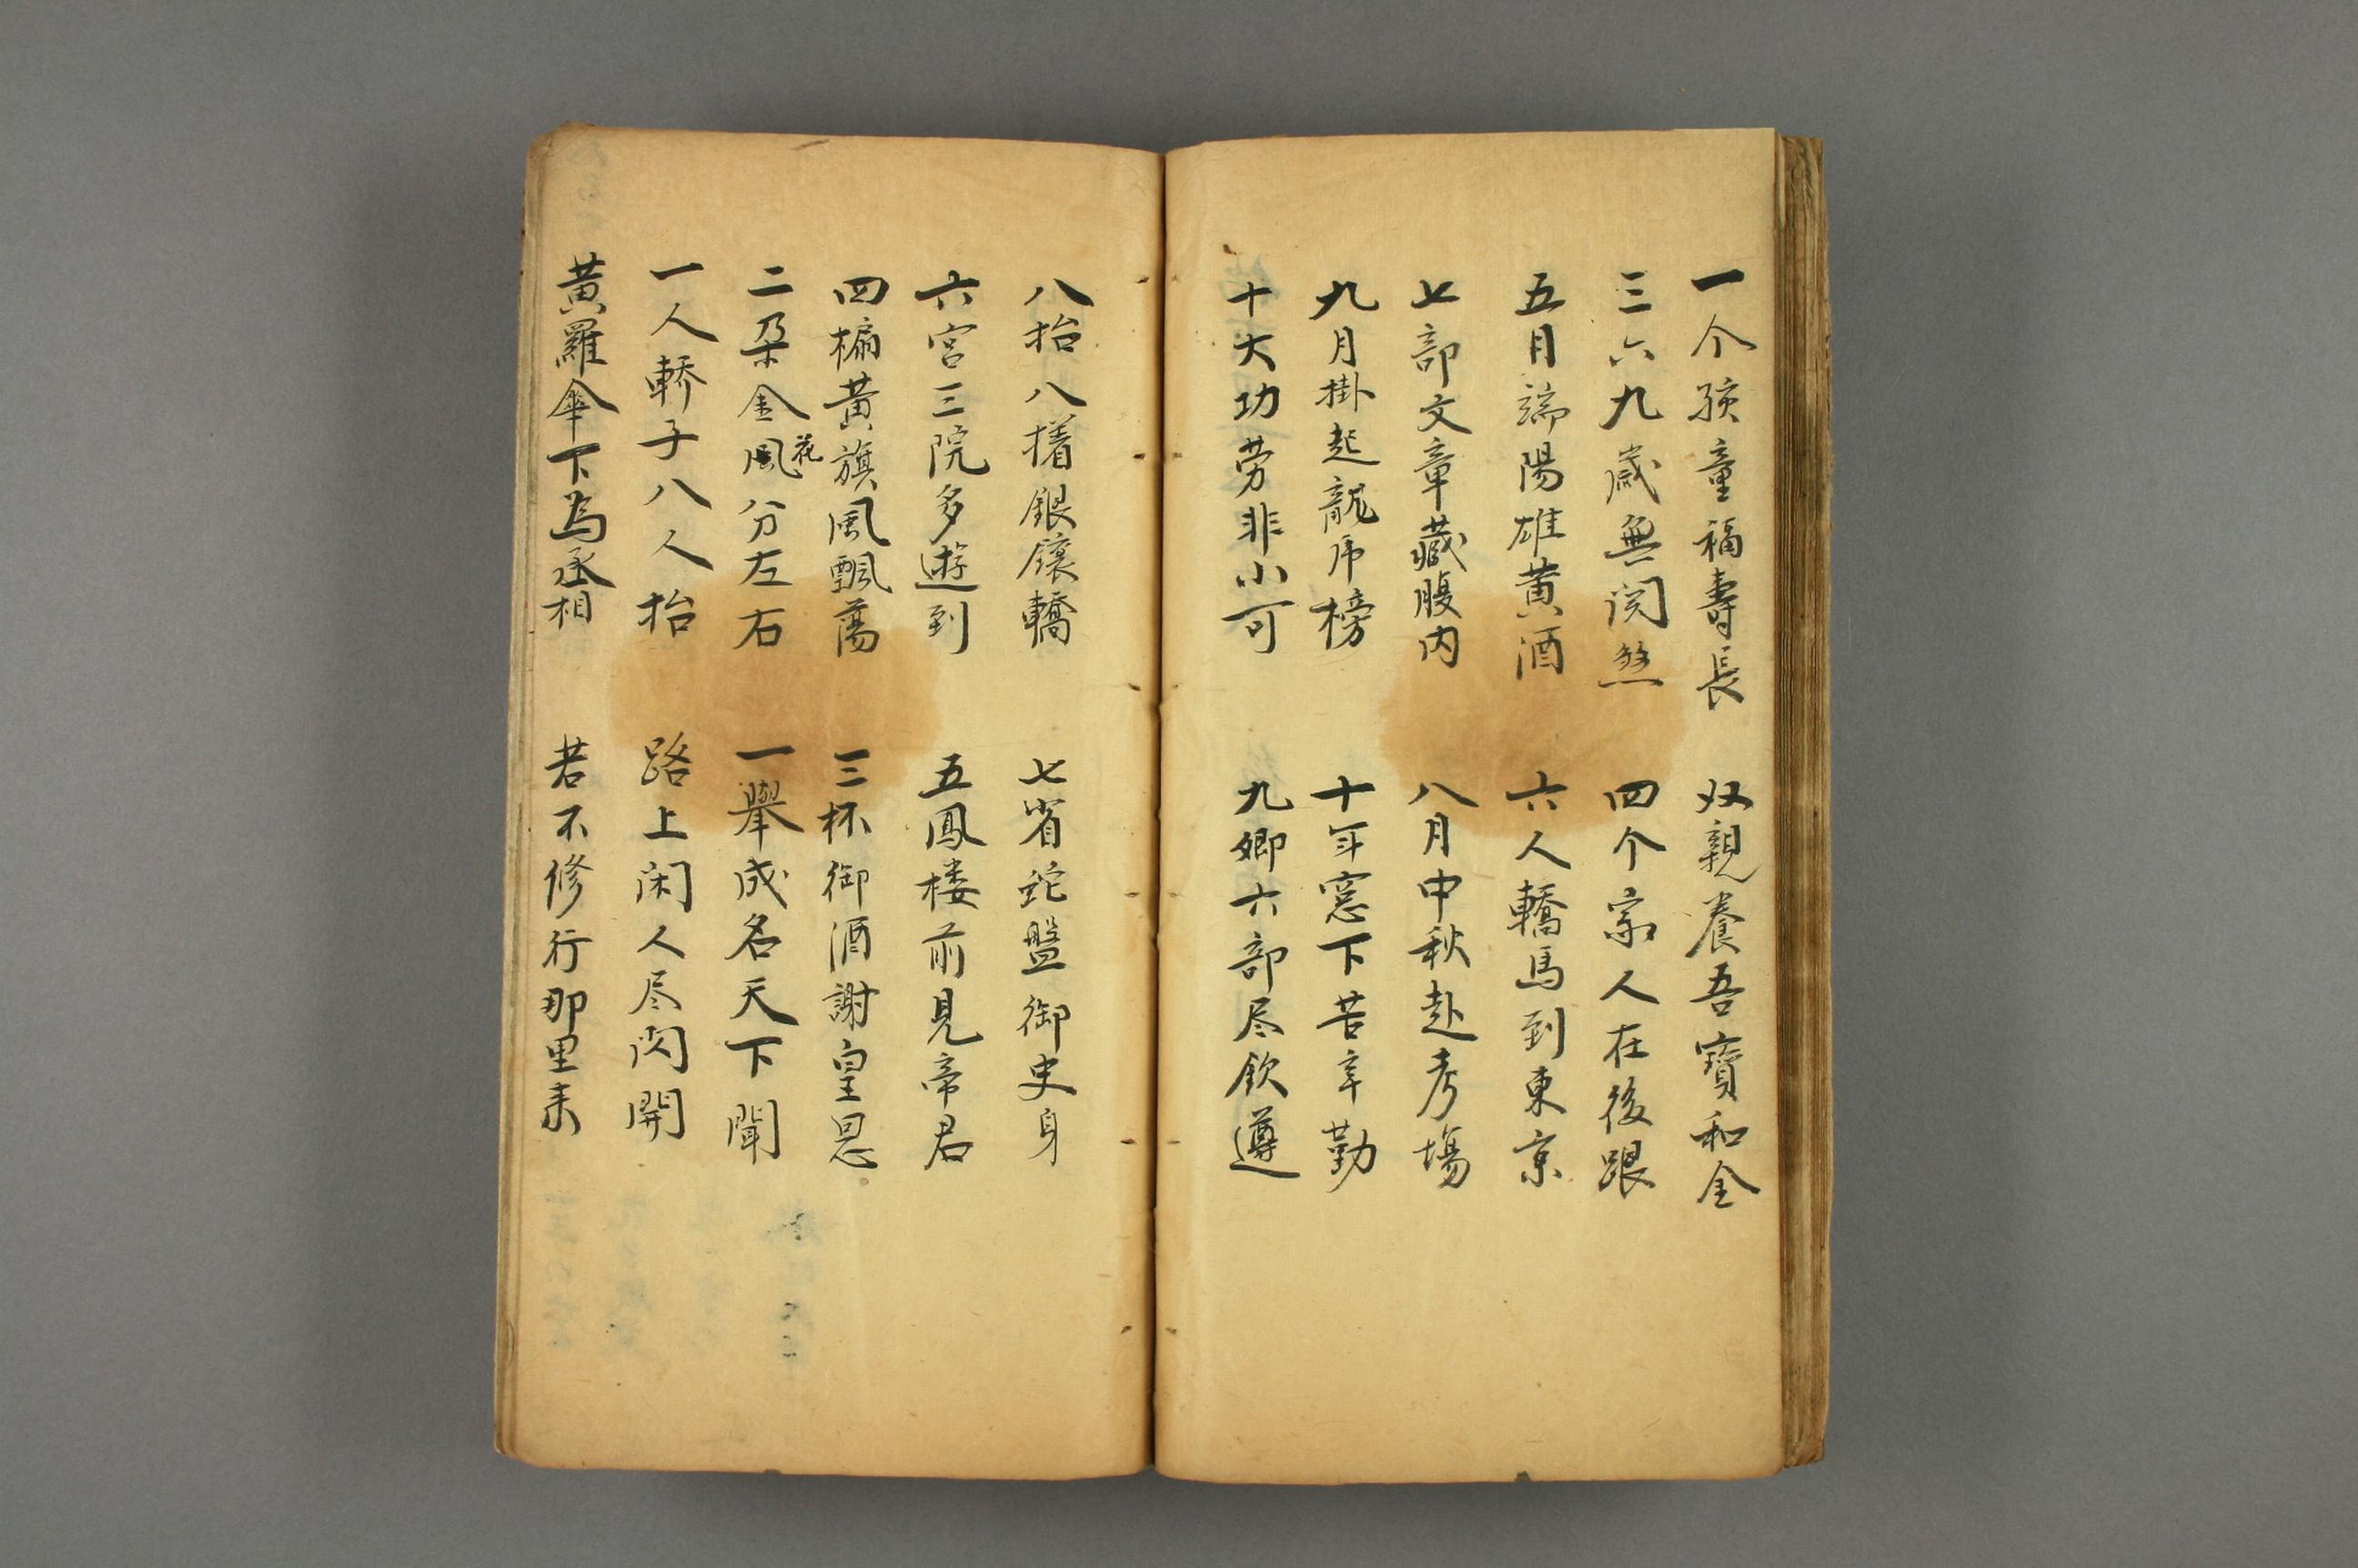 一个孩童福壽長　双親養吾寶和金
三六九歲無関煞　四个家人在後跟
五月端陽雄黃酒　六人轎馬到東京
七部文章藏腹内　八月中秋赴考場
九月掛起龍虎榜　十年窓下苦辛勤
十大功劳非小可　九卿六部尽欽遵
八抬八撯銀鑲轎　七省巡盤御史身
六宮三院多遊到　五鳳楼前見帝君
四楄黃旗風飄蕩　三杯御酒謝皇恩
二朶金風花分左右　一舉成名天下聞
一人轿子八人抬　路上闲人尽閃開
黃羅傘下為丞相　若不修行那里来